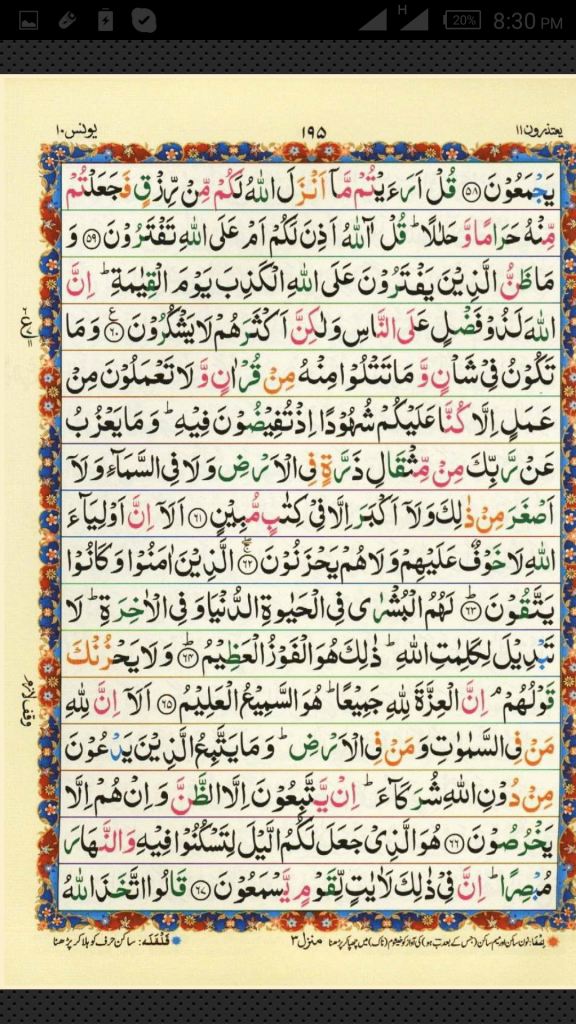 H 20% 8:30 PM
یعتذرون۱۱ ۱۹۵ یونس۱۰
یَجْمَعُوْنَ ﴿۵۸﴾ قُلْ اَرَءَیْتُمْ مَّاۤ اَنْزَلَ اللّٰهُ لَكُمْ مِّنْ رِّزْقٍ فَجَعَلْتُمْ
مِّنْهُ حَرَامًا وَّ حَلٰلًا ؕ قُلْ آٰللّٰهُ اَذِنَ لَكُمْ اَمْ عَلَی اللّٰهِ تَفْتَرُوْنَ ﴿۵۹﴾ وَ
مَا ظَنُّ الَّذِیْنَ یَفْتَرُوْنَ عَلَی اللّٰهِ الْكَذِبَ یَوْمَ الْقِیٰمَةِ ؕ اِنَّ
اللّٰهَ لَذُوْ فَضْلٍ عَلَی النَّاسِ وَلٰكِنَّ اَكْثَرَهُمْ لَا یَشْكُرُوْنَ ﴿۶۰﴾ وَ مَا
تَكُوْنُ فِیْ شَاْنٍ وَّ مَا تَتْلُوْا مِنْهُ مِنْ قُرْاٰنٍ وَّ لَا تَعْمَلُوْنَ مِنْ
عَمَلٍ اِلَّا كُنَّا عَلَیْكُمْ شُهُوْدًا اِذْ تُفِیْضُوْنَ فِیْهِ ؕ وَ مَا یَعْزُبُ
عَنْ رَّبِّكَ مِنْ مِّثْقَالِ ذَرَّةٍ فِی الْاَرْضِ وَ لَا فِی السَّمَآءِ وَ لَاۤ
اَصْغَرَ مِنْ ذٰلِكَ وَ لَاۤ اَكْبَرَ اِلَّا فِیْ كِتٰبٍ مُّبِیْنٍ ﴿۶۱﴾ اَلَاۤ اِنَّ اَوْلِیَآءَ
اللّٰهِ لَا خَوْفٌ عَلَیْهِمْ وَ لَا هُمْ یَحْزَنُوْنَ ﴿۶۲﴾ الَّذِیْنَ اٰمَنُوْا وَ كَانُوْا
یَتَّقُوْنَ ﴿۶۳﴾ لَهُمُ الْبُشْرٰی فِی الْحَیٰوةِ الدُّنْیَا وَ فِی الْاٰخِرَةِ ؕ لَا
تَبْدِیْلَ لِكَلِمٰتِ اللّٰهِ ؕ ذٰلِكَ هُوَ الْفَوْزُ الْعَظِیْمُ ﴿۶۴﴾ وَ لَا یَحْزُنْكَ
قَوْلُهُمْ ۘ اِنَّ الْعِزَّةَ لِلّٰهِ جَمِیْعًا ؕ هُوَ السَّمِیْعُ الْعَلِیْمُ ﴿۶۵﴾ اَلَاۤ اِنَّ لِلّٰهِ
مَنْ فِی السَّمٰوٰتِ وَ مَنْ فِی الْاَرْضِ ؕ وَ مَا یَتَّبِعُ الَّذِیْنَ یَدْعُوْنَ
مِنْ دُوْنِ اللّٰهِ شُرَكَآءَ ؕ اِنْ یَّتَّبِعُوْنَ اِلَّا الظَّنَّ وَ اِنْ هُمْ اِلَّا
یَخْرُصُوْنَ ﴿۶۶﴾ هُوَ الَّذِیْ جَعَلَ لَكُمُ الَّیْلَ لِتَسْكُنُوْا فِیْهِ وَ النَّهَارَ
مُبْصِرًا ؕ اِنَّ فِیْ ذٰلِكَ لَاٰیٰتٍ لِّقَوْمٍ یَّسْمَعُوْنَ ﴿۶۷﴾ قَالُوا اتَّخَذَ اللّٰهُ
وقف لازم
منزل۳
قَلْقَلَه: ساکن حرف کو ہلا کر پڑھنا